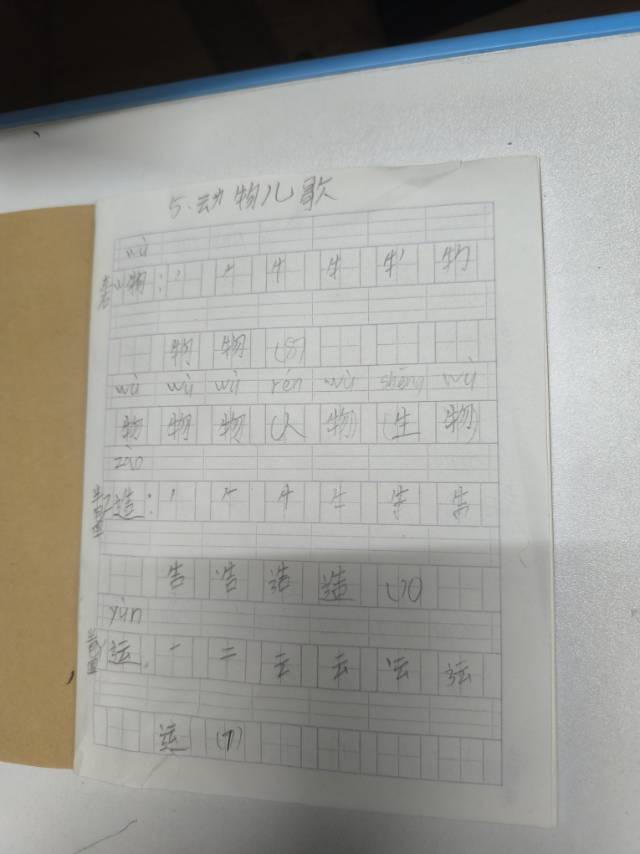 5.动物儿歌
wù
物：丿 𠂉 牛 牜 物
物 物 (8)
wù wù wù rén wù shēng wù
物 物 物 (人 物) (生 物)
zào
造：丿 𠂉 牛 生 告 告
告 告 造 造 (10)
yùn
运 一 二 云 云 运 运
运 (7)